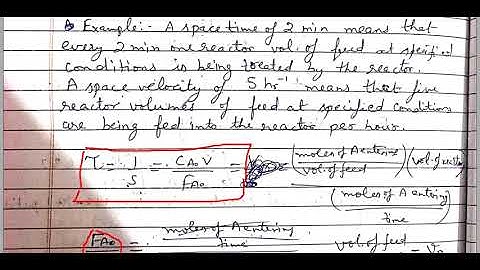 Example:- A space time of 2 min means that
every 2 min one reactor vol. of feed at specified
conditions is being treated by the reactor.
A space velocity of 5 hr⁻¹ means that five
reactor volumes of feed at specified conditions
are being fed into the reactor per hour.
τ = 1/S = CA0 V / FA0 = (moles of A entering / vol. of feed) (vol. of reactor) / (moles of A entering / time)
FA0 = moles of A entering / time vol. of feed = v0